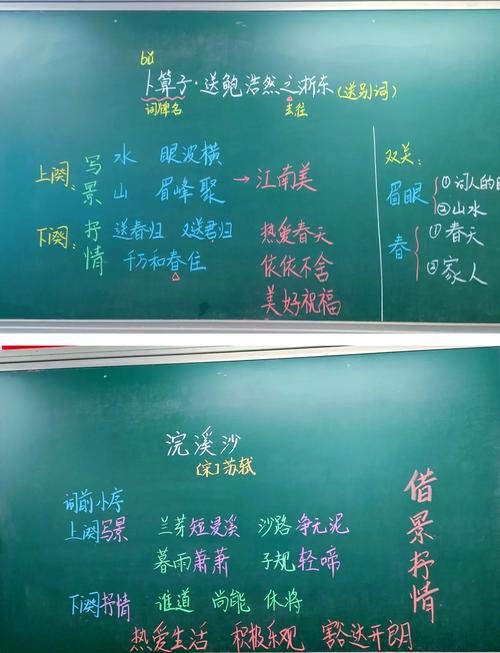 bǔ
卜算子·送鲍浩然之浙东(送别词)
词牌名 去往
上阕: 写景 水 眼波横
山 眉峰聚 → 江南美
下阕: 抒情 送春归 又送君归
千万和春住
热爱春天
依依不舍
美好祝福
双关:
眉眼 ①词人的
②山水
春 ①春天
②家人
浣溪沙
[宋]苏轼
词前小序
上阕写景 兰芽短浸溪 沙路净无泥
暮雨萧萧 子规轻啼
下阕抒情 谁道 尚能 休将
热爱生活 积极乐观 豁达开朗
借景抒情